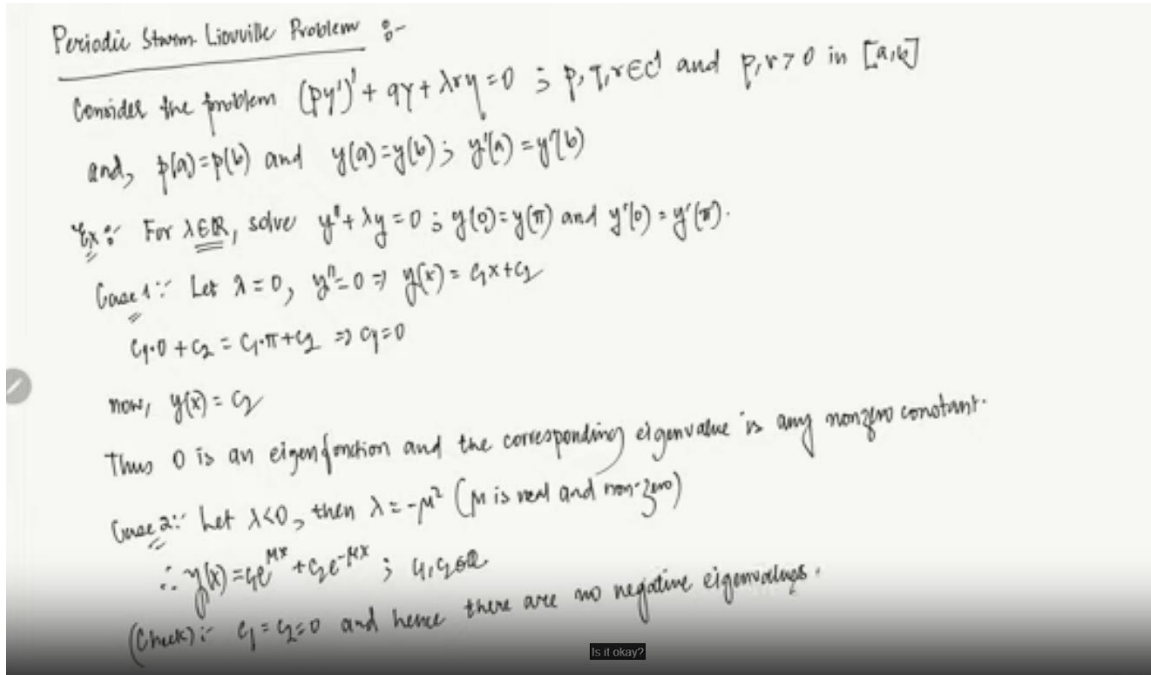 Periodic Sturm Liouville Problem :-
Consider the problem (py')' + qy + λry = 0 ; p, q, r ∈ C¹ and p, r > 0 in [a, b]
and, p(a) = p(b) and y(a) = y(b) ; y'(a) = y'(b)
Ex :- For λ ∈ ℝ, solve y'' + λy = 0 ; y(0) = y(π) and y'(0) = y'(π).
Case 1 :- Let λ = 0, y'' = 0 ⇒ y(x) = c₁x + c₂
c₁·0 + c₂ = c₁·π + c₂ ⇒ c₁ = 0
now, y(x) = c₂
Thus 0 is an eigenfunction and the corresponding eigenvalue is any nonzero constant.
Case 2 :- Let λ < 0, then λ = -μ² (μ is real and non-zero)
∴ y(x) = c₁e^{μx} + c₂e^{-μx} ; c₁, c₂ ∈ ℝ
(Check) :- c₁ = c₂ = 0 and hence there are no negative eigenvalues.
Is it okay?